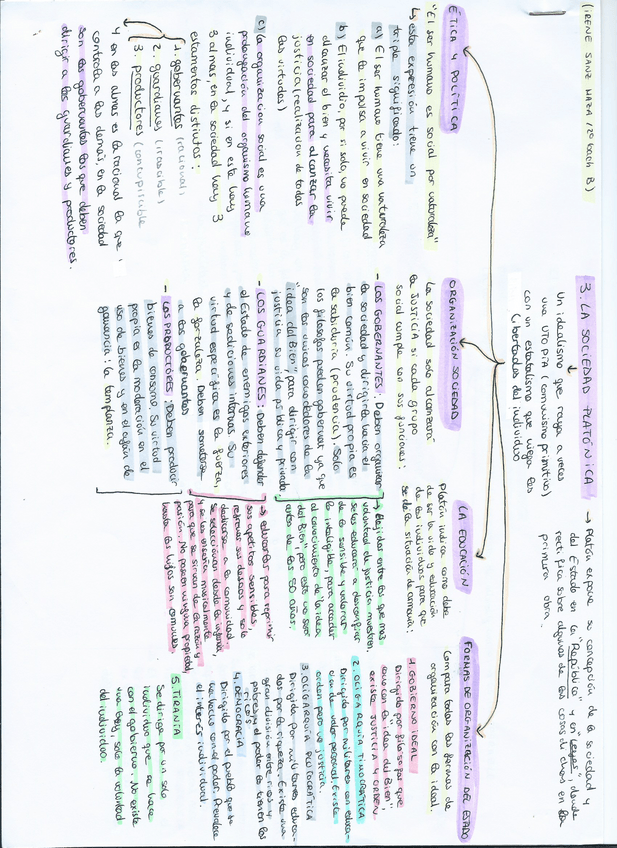 (IRENE SANZ MAZA / 2º bach B)
3. LA SOCIEDAD PLATÓNICA
Un idealismo que raya a veces
una UTOPÍA (comunismo primitivo)
con un estatalismo que niega las
libertades del individuo
→ Platón expone su concepción de la sociedad y
del Estado en la "República" y en "Leyes" donde
rectifica sobre algunas de las cosas dichas en la
primera obra.
ÉTICA Y POLÍTICA
"El ser humano es social por naturaleza"
↳ esta expresión tiene un
triple significado:
a) El ser humano tiene una naturaleza
que le impulsa a vivir en sociedad
b) El individuo, por sí solo, no puede
alcanzar el bien y necesita vivir
en sociedad para alcanzar la
justicia (realización de todas
las virtudes)
c) La organización social es una
prolongación del organismo humano
individual, y si en este hay
3 almas, en la sociedad hay 3
estamentos distintos:
1. gobernantes (racional)
2. guardianes (irascible)
3. productores (concupiscible
y en las almas es la racional la que
controla a las demás, en la sociedad
son los gobernantes los que deben
dirigir a los guardianes y productores.
ORGANIZACIÓN SOCIEDAD
La sociedad solo alcanzará
la justicia si cada grupo
social cumple con sus funciones:
- LOS GOBERNANTES: Deben organizar
la sociedad y dirigirla hacia el
bien común. Su virtud propia es
la sabiduría (prudencia). Solo
los filósofos pueden gobernar ya que
son los únicos conocedores de la
"idea del Bien", para dirigir con
justicia su vida pública y privada.
- LOS GUARDIANES: Deben defender
el Estado de enemigos exteriores
y de sediciones internas. Su
virtud específica es la fuerza,
la fortaleza. Deben someterse
a los gobernantes
- LOS PRODUCTORES: Deben producir
bienes de consumo. Su virtud
propia es la moderación en el
uso de bienes y en el afán de
ganancia: la templanza.
LA EDUCACIÓN
Platón indica como debe
de ser la vida y educación
de los individuos para que
se dé la situación de armonía:
→ Elegidos entre los que más
voluntad de justicia muestren,
se les educará a desconfiar
de lo sensible y valorar
lo inteligible, para acceder
al conocimiento de "la idea
del Bien", pero esto no será
antes de los 50 años.
→ educarlos para reprimir
sus apetitos sensibles,
refrenar sus deseos y solo
dedicarse a la comunidad
se seleccionan desde la infancia,
y se les enseña musicalmente
para que se sirvan de la razón y
pasión. No poseen ninguna propiedad,
hasta los hijos son comunes.
FORMAS DE ORGANIZACIÓN DEL ESTADO
Compara todas las formas de
organización con la ideal.
1. GOBIERNO IDEAL
Dirigido por filósofos que
conocen la idea del Bien,
existe JUSTICIA Y ORDEN.
2. OLIGARQUÍA TIMOCRÁTICA
Dirigido por militares con educa-
ción de valor personal. Existe
orden pero no justicia.
3. OLIGARQUÍA PLUTOCRÁTICA
Dirigido por militares educa-
dos por la riqueza. Existe una
gran división entre ricos y
pobres y el poder lo tienen los
ricos
4. DEMOCRACIA
Dirigido por el pueblo que se
ha hecho con el poder. Prevalece
el interés individual.
5. TIRANÍA
Se dirige por un solo
individuo que se hace
con el gobierno. No existe
una ley, solo la voluntad
del individuo.